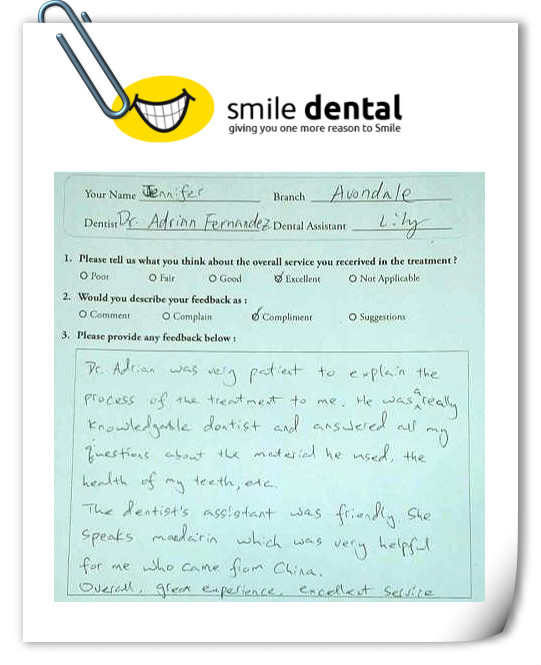 smile dental
giving you one more reason to Smile
Your Name Jennifer Branch Avondale
Dentist Dr. Adrian Fernandez Dental Assistant Lily
1. Please tell us what you think about the overall service you recerived in the treatment ?
Poor Fair Good Excellent Not Applicable
2. Would you describe your feedback as :
Comment Complain Compliment Suggestions
3. Please provide any feedback below :
Dr. Adrian was very patient to explain the
process of the treatment to me. He was a really
knowledgable dentist and answered all my
questions about the material he used, the
health of my teeth, etc.
The dentist's assistant was friendly. She
speaks mandairin which was very helpful
for me who came from China.
Overall, great experience, excellect service